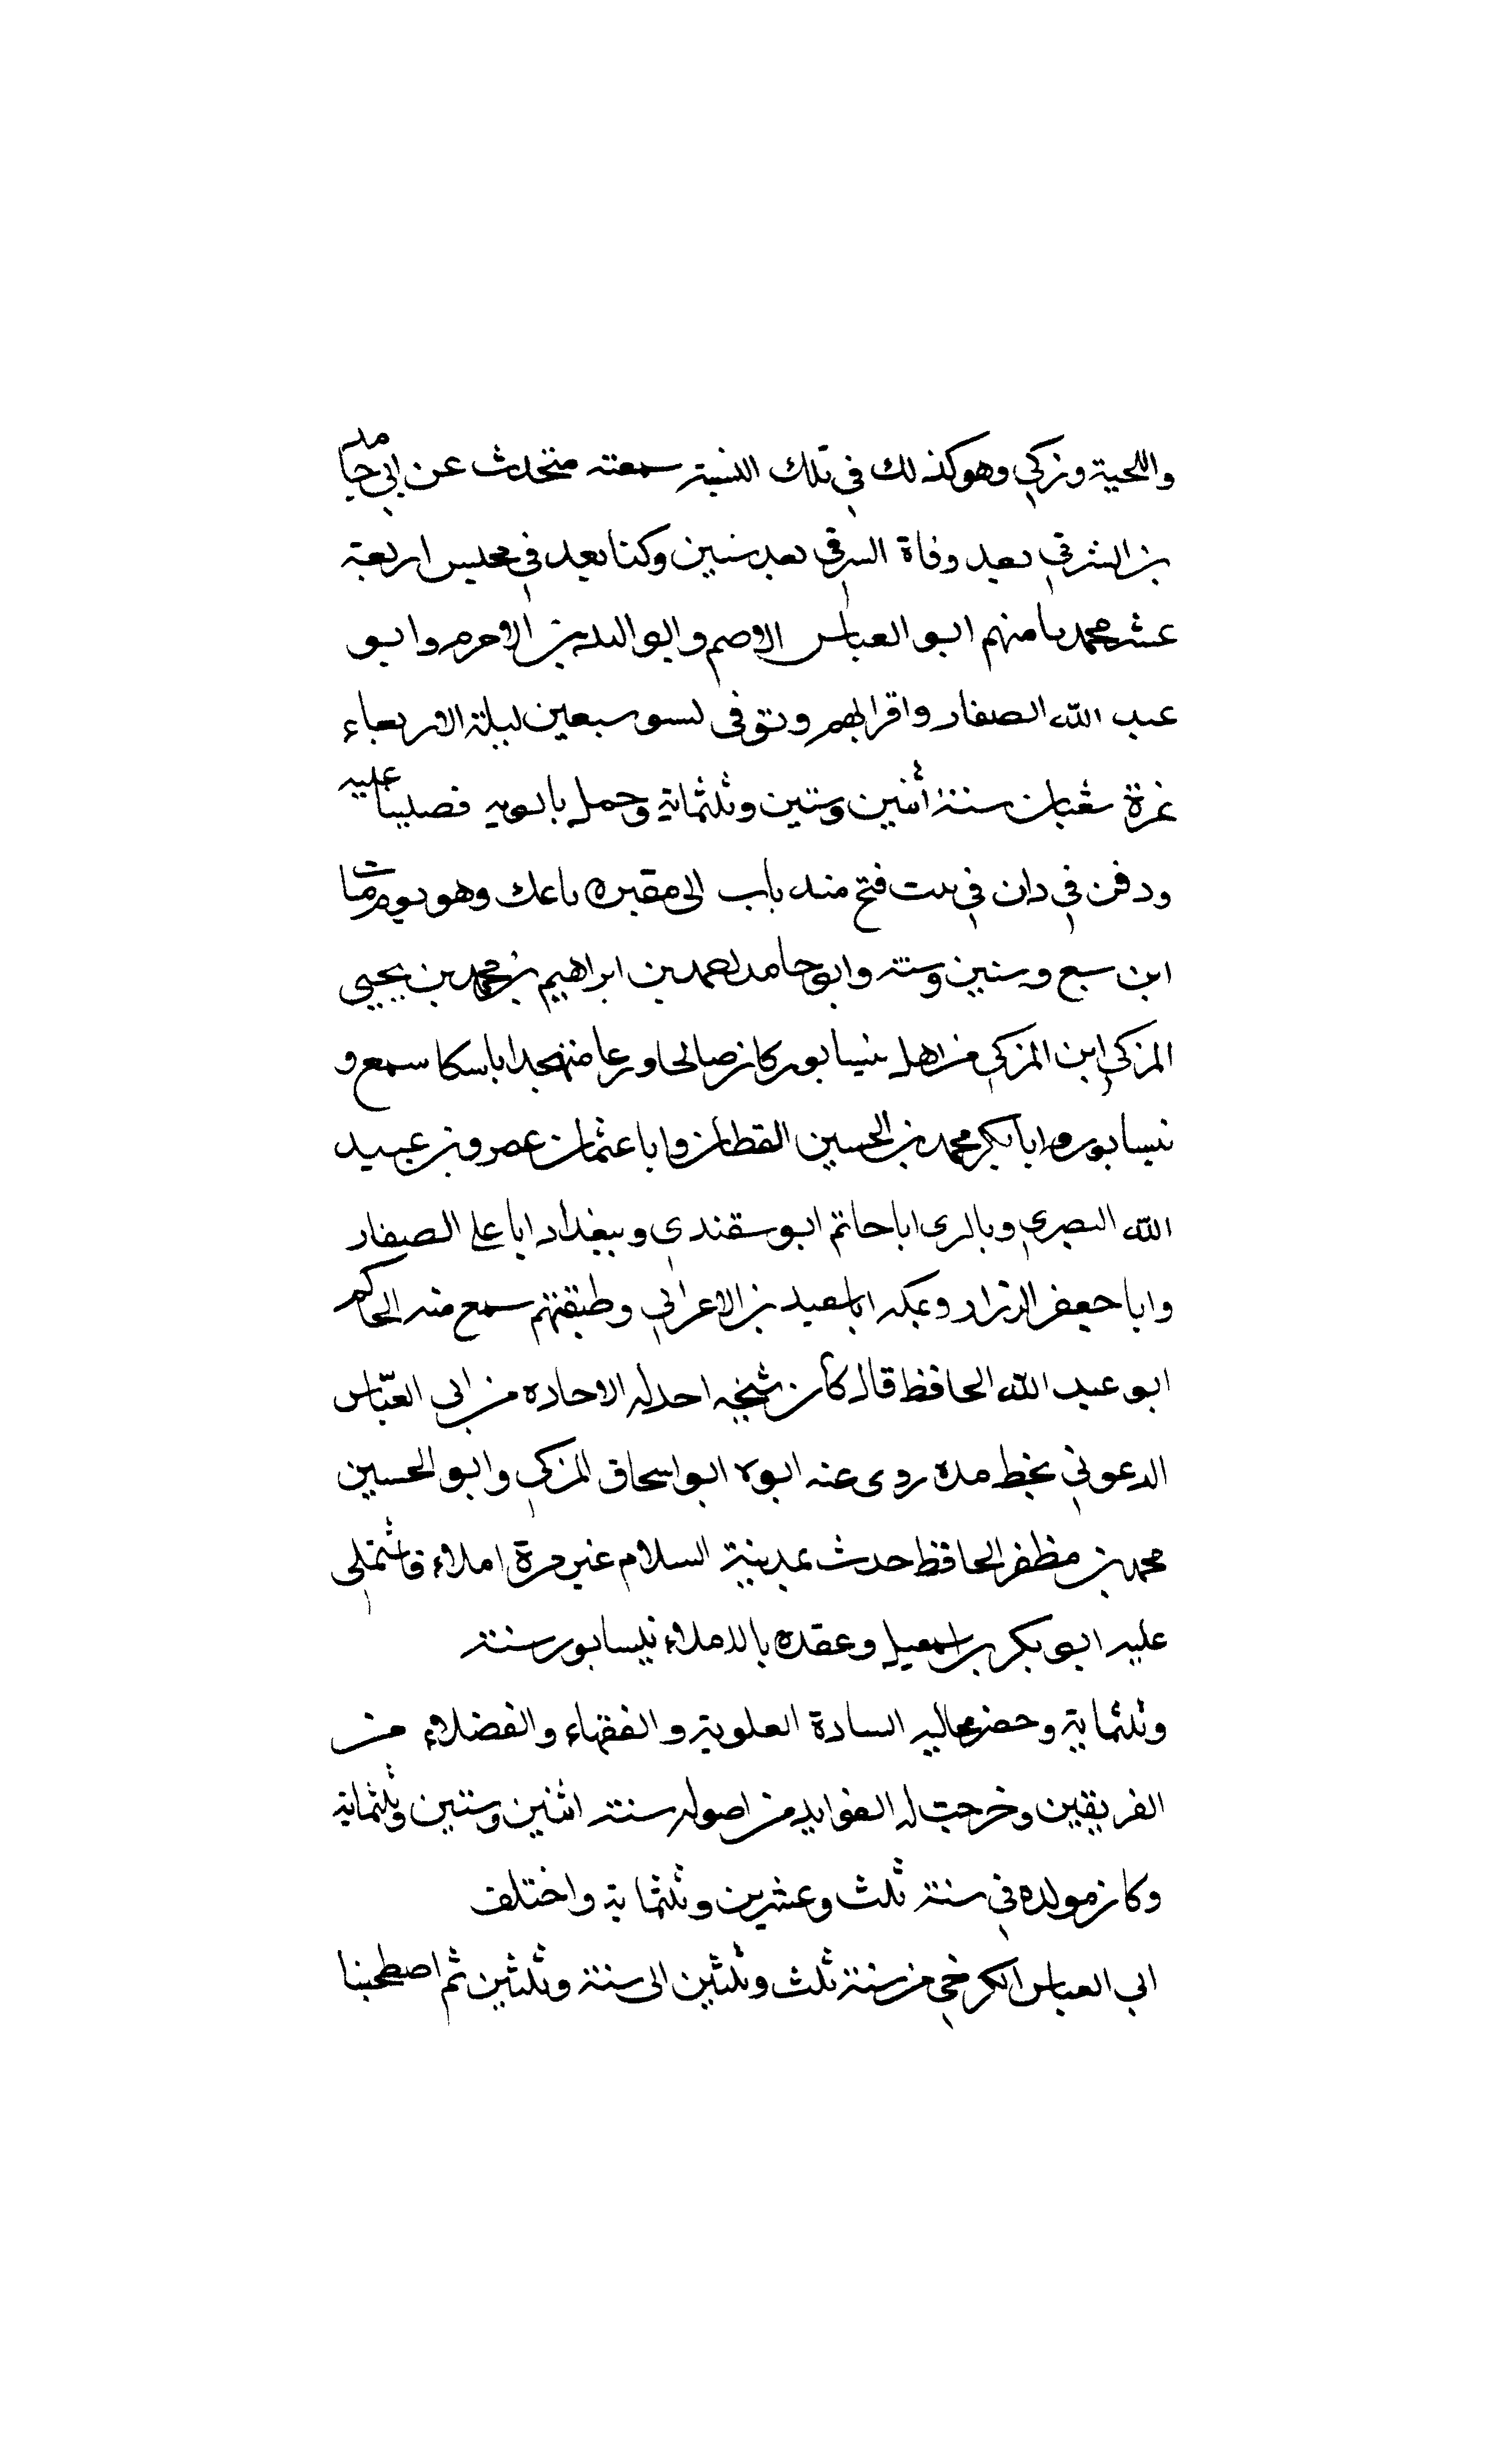 واللحية وزكي وهو كذلك في تلك السنة سمعته يتحدث عن ابي حامد
بن الشرقي بعد وفاة الشرقي بعد سنين وكنا بعد في مجلس اربعة
عشر محمدنا منهم ابو العباس الاصم وابو عبد الله بن الاخرم وابو
عبد الله الصفار واقرانهم وتوفى لسو سبعين ليلة الاربعاء
غرة شعبان سنة اثنين وستين وثلثماية وحمل بالويه فصلينا عليه
ودفن في دان في بيت فتح منه باب الى مقبره باعك وهو يوم مات
ابن سبع وستين وسته وابو حامد احمد بن ابراهيم بن محمد بن يحيى
المزكي ابن المزكي من اهل نيسابور كان صالحا ورعا منهجدا باسكا سمع و
نيسابوره ابا بكر محمد بن الحسين القطان وابا عثمان عمرو بن عبيد
الله البصري وبالرى ابا حاتم ابوسقندي وببغداد ابا على الصفار
وابا جعفر الرزاز وبمكه ابا سعيد بن الاعرابي وطبقتهم سمع منه الحاكم
ابو عبد الله الحافظ قال كان شيخه احد له الاحاده من ابي العباس
الدعوني بخط مده روى عنه ابوه ابو اسحاق المزكي وابو الحسين
محمد بن مظفر الحافظ حدث بمدينة السلام غير مرة املاء فاستملى
عليه ابو بكر بن اسمعيل وعقده بالاملاء نيسابور سنة
وثلثماية وحضر مجاليه السادة العلوية والفقهاء والفضلاء من
الفريقين وخرجت له الفوايد من اصوله سنة اثنين وستين وثلثماية
وكان مولده في سنة ثلث وعشرين وثلثماية واختلف
ابي العباس الكرخي من سنة ثلث وثلثين الى سنة وثلثين ثم اصطحبنا